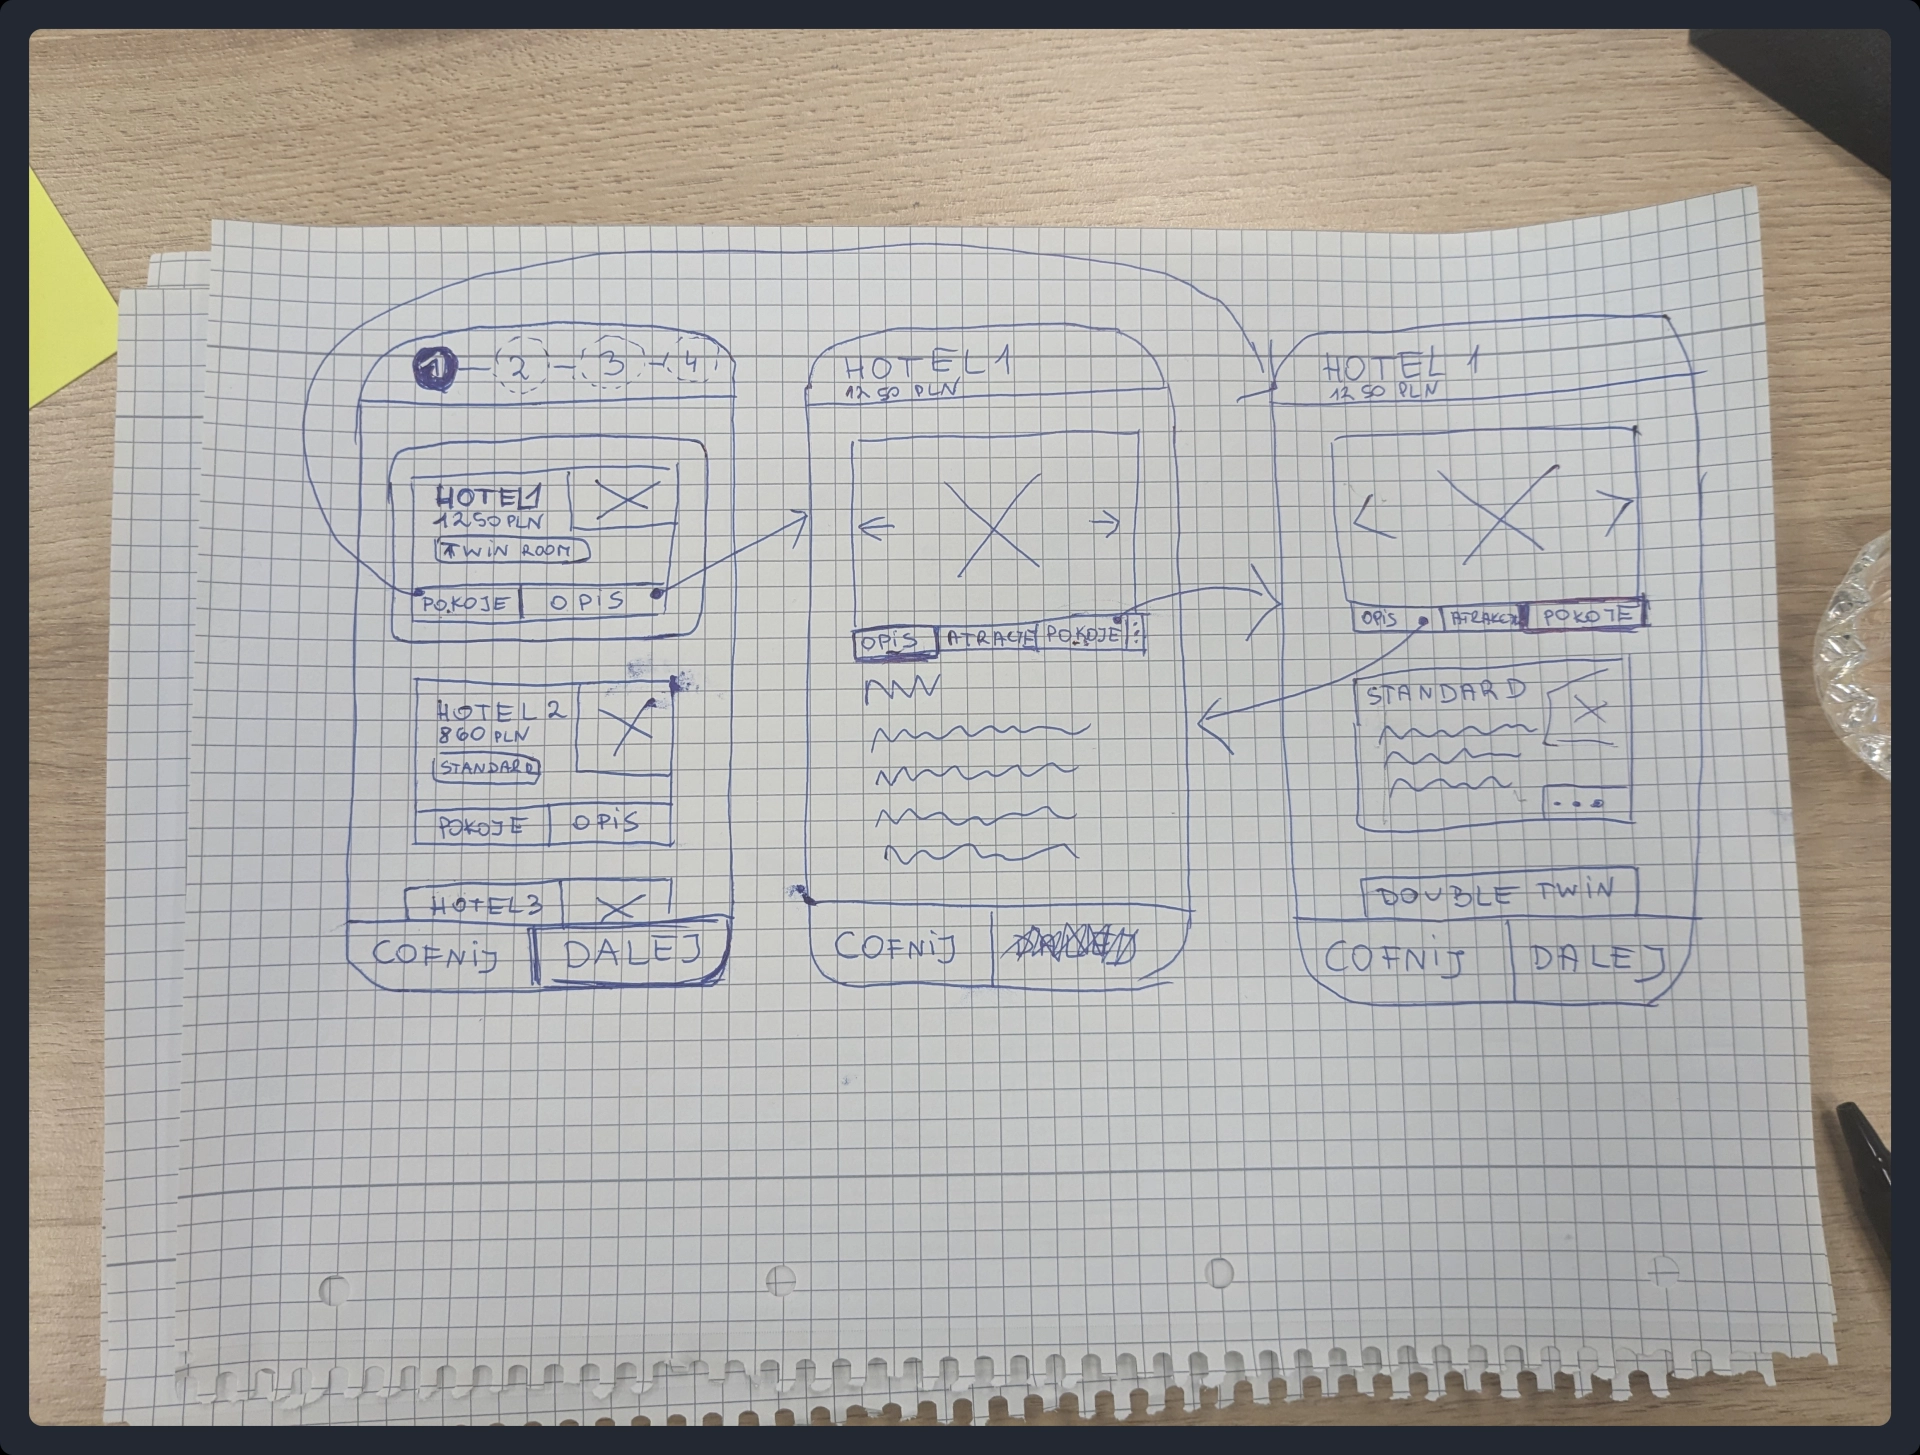 1 2 3 4
HOTEL1
1250 PLN
TWIN ROOM
POKOJE OPIS
HOTEL 2
860 PLN
STANDARD
POKOJE OPIS
HOTEL3
COFNIJ DALEJ
HOTEL 1
1250 PLN
OPIS ATRACJE POKOJE
COFNIJ
HOTEL 1
1250 PLN
OPIS POKOJE
STANDARD
...
DOUBLE TWIN
COFNIJ DALEJ